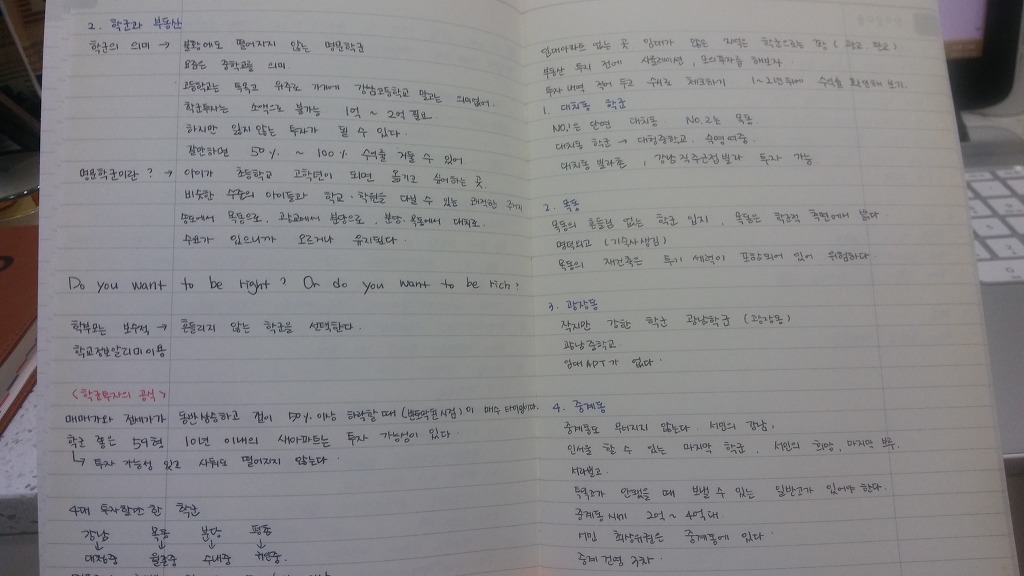 2. 학군과 부동산
학군의 의미 → 불황에도 떨어지지 않는 명문학군
요즘은 중학교를 의미.
고등학교는 특목고 위주로 가기에 강남고등학교 말고는 의미없어.
학군투자는 소액으로 불가능 1억 ~ 2억 필요.
하지만 잃지않는 투자가 될 수 있다.
잘만하면 50% ~ 100% 수익률 거둘 수 있어
명문학군이란? → 아이가 초등학교 고학년이 되면 옮기고 싶어하는 곳.
비슷한 수준의 아이들과 학교·학원을 다닐 수 있는 쾌적한
송도에서 목동으로, 광교에서 분당으로, 분당·목동에서 대치로.
수요가 있으니까 오르거나 유지된다.
Do you want to be right? Or do you want to be rich?
학부모는 보수적 → 흔들리지 않는 학군을 선택한다.
학교정보알리미 이용
<학군투자의 공식>
매매가와 전세가가 동반상승하고 갭이 50% 이상 하락할 때 ( ) 이 매수 타이밍이다.
학군 좋은 59형 10년 이내의 새아파트는 투자 가능성이 있다.
↳ 투자 가능성 있고 사둬도 떨어지지 않는다.
4대 투자할만 한 학군
강남 목동 분당 평촌
↓ ↓ ↓ ↓
대청중 월촌중 수내중 귀인중.
임대아파트 없는 곳 임대가 많은 지역은 학군으로는 꽝 (광교, 판교)
부동산 투자 전에 시뮬레이션, 모의투자를 해보자.
투자 내역 적어 두고 수시로 체크하기 1~2년뒤에 수익률 확인해 보기.
1. 대치동 학군
No.1은 단연 대치동 No.2는 목동.
대치동 학군 → 대청중학교. 숙명여중.
대치동 빌라촌, 강남 직주근접빌라 투자 가능
2. 목동
목동의 흔들림 없는 학군 입지, 목동은 학군적 측면에서 좋다
명덕외고 (기숙사생김)
목동의 재건축은 투기 세력이 포함되어 있어 위험하다.
3. 광장동
작지만 강한 학군 광남학군 (광장동)
광남중학교.
임대APT가 없다.
4. 중계동
중계동도 무너지지 않는다. 서민의 강남,
인서울 할 수 있는 마지막 학군, 서민의 희망, 마지막 보루.
서라벌고.
특목고가 안됐을 때 보낼 수 있는 일반고가 있어야 한다.
중계동 시세 2억 ~ 4억대.
서민 최상위권은 중계동에 있다.
중계 건영 3차.